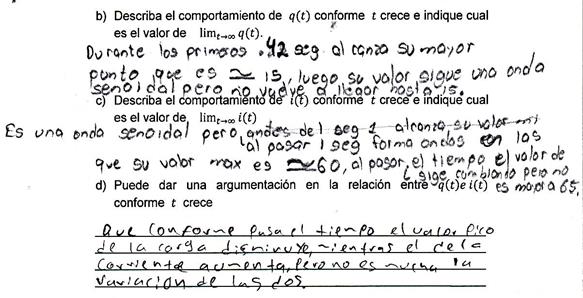 b) Describa el comportamiento de q(t) conforme t crece e indique cual
es el valor de lim t→∞ q(t).
Durante los primeros .42 seg alcanza su mayor
punto que es ≃ 15, luego su valor sigue una onda
senoidal pero no vuelve a llegar hasta 15.
c) Describa el comportamiento de i(t) conforme t crece e indique cual
es el valor de lim t→∞ i(t)
Es una onda senoidal pero, antes del seg 1 alcanza su valor mi
al pasar 1 seg forma ondas en las
que su valor max es ≃60, al pasar, el tiempo el valor de
i sige cambiando pero no
d) Puede dar una argumentación en la relación entre q(t) e i(t) es mayor a 65,
conforme t crece
Que conforme pasa el tiempo el valor pico
de la carga disminuye, mientras el de la
corriente aumenta, pero no es mucha la
variación de las dos.